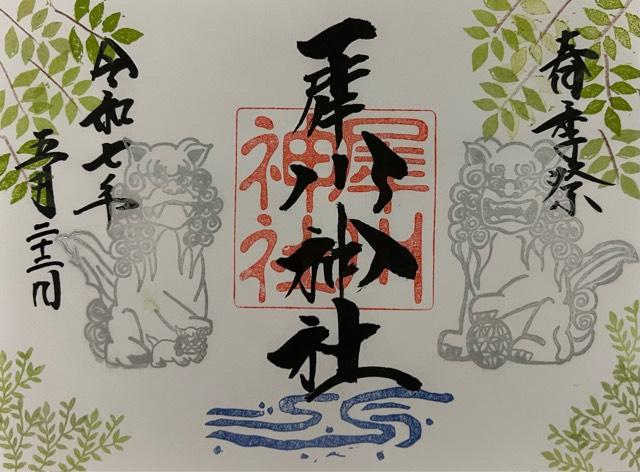 春季祭
犀川神社
犀川
神社
令和七年
五月二十二日